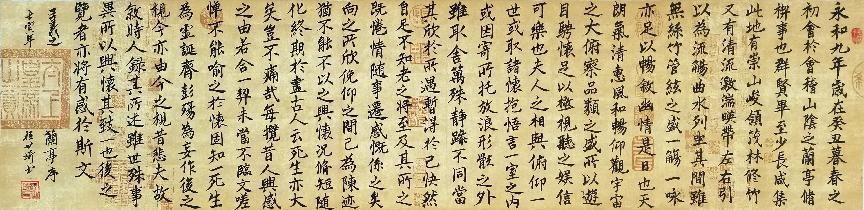 永和九年歲在癸丑暮春之
初會於會稽山陰之蘭亭脩
稧事也群賢畢至少長咸集
此地有崇山峻領茂林修竹
又有清流激湍暎帶左右引
以為流觴曲水列坐其間雖
無絲竹管絃之盛一觴一詠
亦足以暢敘幽情是日也天
朗氣清惠風和暢仰觀宇宙
之大俯察品類之盛所以遊
目騁懷足以極視聽之娛信
可樂也夫人之相與俯仰一
世或取諸懷抱悟言一室之內
或因寄所托放浪形骸之外
雖取舍萬殊靜躁不同當
其欣於所遇暫得於己快然
自足不知老之將至及其所之
既惓情隨事遷感慨係之矣
向之所欣俛仰之間已為陳迹
猶不能不以之興懷況脩短隨
化終期於盡古人云死生亦大
矣豈不痛哉每攬昔人興感
之由若合一契未嘗不臨文嗟
悼不能喻之於懷固知一死生
為虛誕齊彭殤為妄作後之
視今亦由今之視昔悲夫故
敘時人錄其所述雖世殊事
異所以興懷其致一也後之
覽者亦將有感於斯文
蘭亭序
王羲之